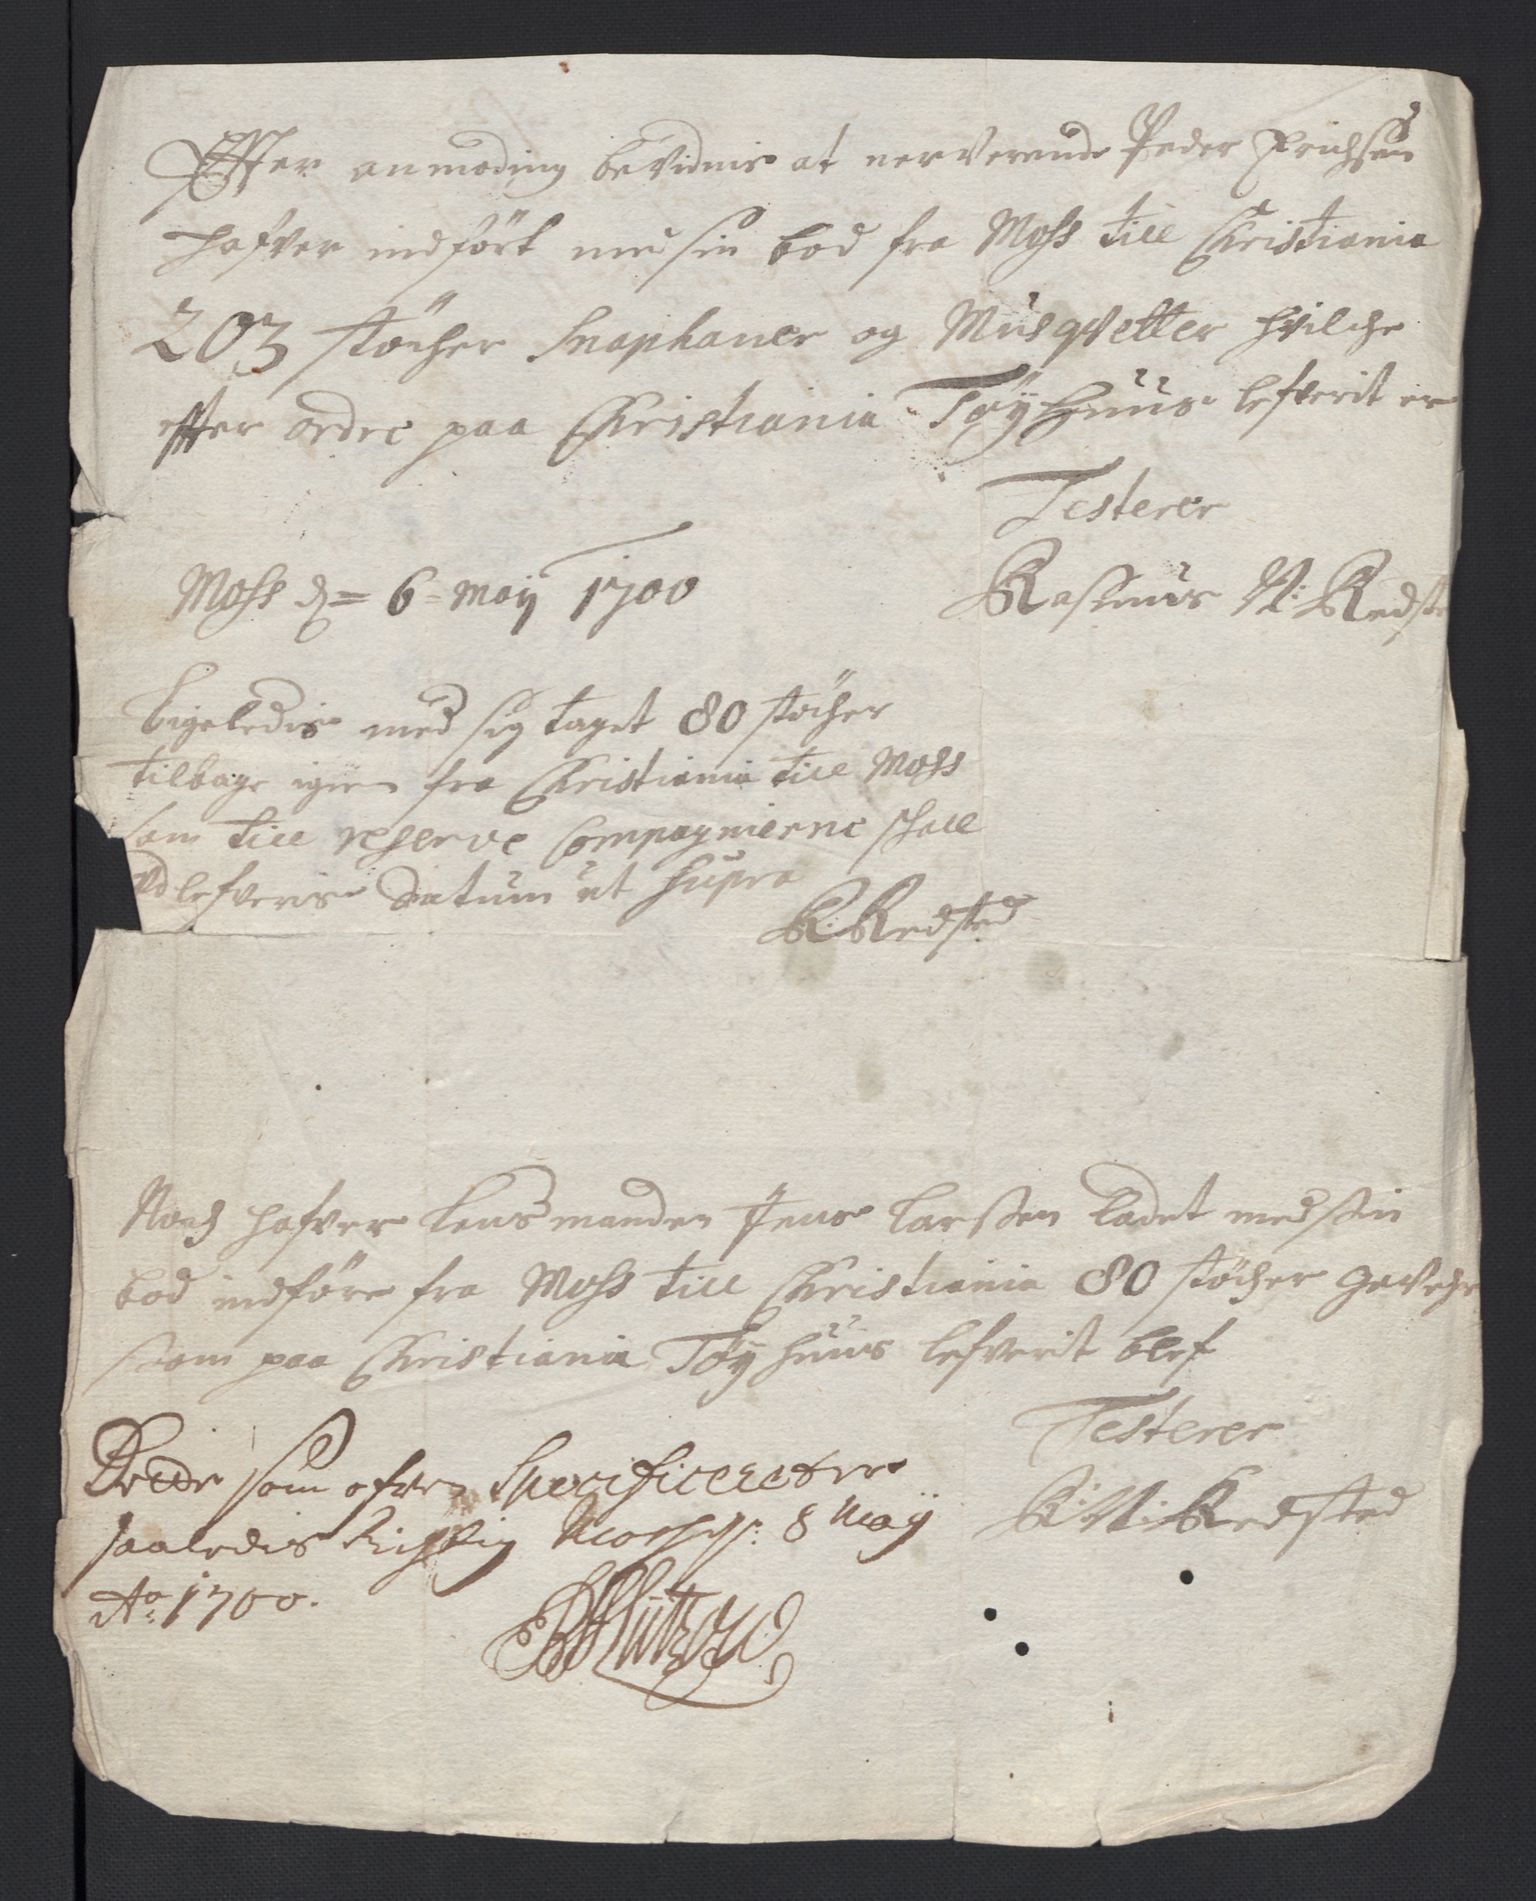 Effter anmoding bevidnis at nerverende Peder Erichsen
hafver indført med sin bod fra Moss till Christiania
203 støcher Snaphaner og Musqvetter hvilche
effter ordre paa Christiania Tøyhuus lefverit er
Testerer
Moss d= 6= Maij 1700
Rasmus N: Redste
Ligeledis med sig taget 80 støcher
tilbage igien fra Christiania till Moss
som till reserve Compagnierne schall
udlefveris Datum ut Supra
R: Redsted
Noch hafver Lensmanden Jens Larssen ladet med sin
bod indføre fra Moss till Christiania 80 støcher gevehr
som paa Christiania Tøyhuus lefverit blef
Testerer
R: N: Redsted
som ofven Specificeret er
saaledis Rigtig Moss d: 8 Maij
Ao: 1700.